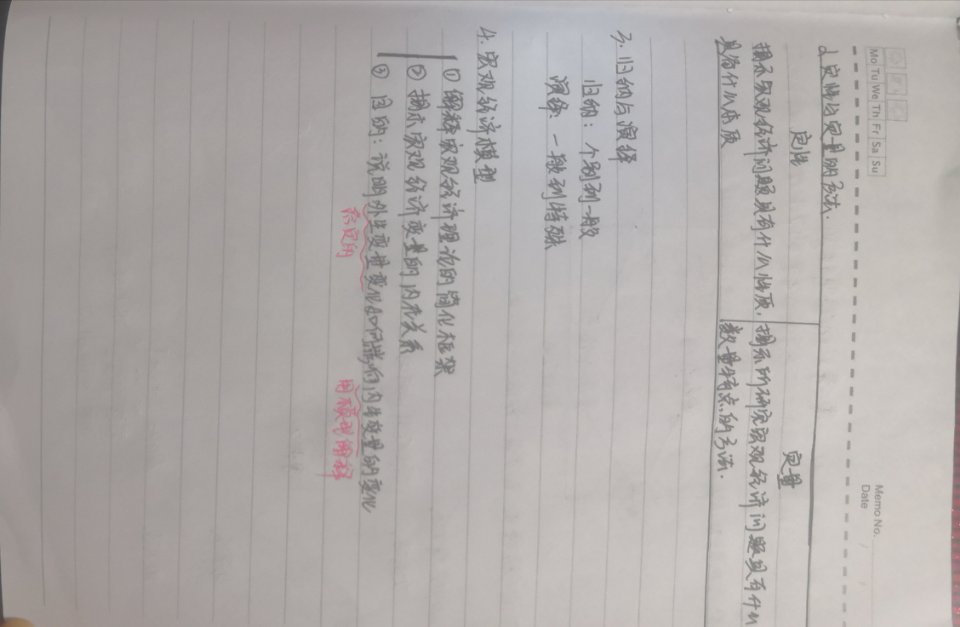 Memo No.
Date
Mo Tu We Th Fr Sa Su
2.定性与定量的方法.
定性
定量
揭示宏观经济问题具有什么性质,
是属什么本质
揭示所研究宏观经济问题具有什么
数量特点的方法.
3.归纳与演绎
归纳：个别到一般
演绎：一般到特殊
4.宏观经济模型
① 解释宏观经济理论的简化框架
② 揭示宏观经济变量的内在关系
③ 目的：说明外生变量变化如何影响内生变量的变化
给定的
用模型解释